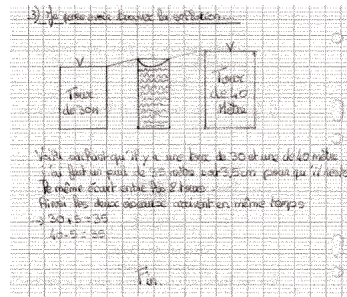 3) Je pense avoir trouvé la solution...
Tour
de 30m
Tour
de 40
Mètre
Voilà sachant qu'il y a une tour de 30 et une de 40 mètre
J'ai fait un puit de 35 mètre soit 3,5cm pour qu'il reste
le même écart entre les 2 tours.
Ainsi les deux oiseaux arrivent en même temps
→ 30+5=35
40-5=35
Fin.